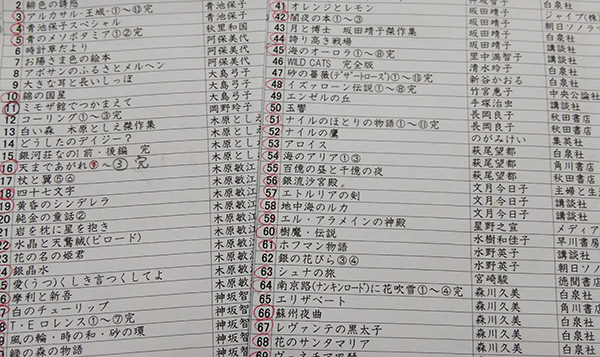 2 緋色の誘惑 青池保子
3 アルカサル-王城-①~⑬完 青池保子
4 青池保子スペシャル 青池保子
5 青のメソポタミア①② 秋里和国
6 時計草だより 阿保美代
7 お陽さま色の絵本 阿保美代
8 アボサンのふるさとメルヘン 阿保美代
9 大きな耳と長いしっぽ 大島弓子
10 綿の国星 大島弓子
11 ミモザ館でつかまえて 大島弓子
12 コーリング①~③完 岡野玲子
13 白い森 木原としえ傑作集 木原としえ
14 どうしたのデイジー? 木原としえ
15 銀河荘なの!前・後編 完 木原としえ
16 天まであがれ ~③ 完 木原敏江
17 杖と翼⑤⑥ 木原敏江
18 四十七文字 木原敏江
19 黄昏のシンデレラ 木原敏江
20 純金の童話② 木原敏江
21 岩を枕に星を抱き 木原敏江
22 水晶と天鵞絨(ビロード) 木原敏江
23 花の名の姫君 木原敏江
24 銀晶水 木原敏江
25 愛(うつく)しき言つくしてよ 木原敏江
26 摩利と新吾 木原敏江
27 白のチューリップ 神坂智
28 T・E ロレンス①~⑦完 神坂智
29 風の輪・時の和・砂の環 神坂智
緑の森の物語
41 オレンジとレモン 坂田靖子 白泉社
42 闇夜の本①~③ 坂田靖子 ジャイブ(株)
43 月と博士 坂田靖子傑作集 坂田靖子 朝日ソノラマ
44 誇り高き戦場 坂田靖子 白泉社
45 海のオーロラ①~⑧完 里中満智子 講談社
46 WILD CATS 完全版 清水玲子 白泉社
47 砂の薔薇(デザートローズ)①~⑮完 新谷かおる 白泉社
48 イズァローン伝説①~⑧完 竹宮恵子 中央公論社
49 エンゼルの丘 手塚治虫 講談社
50 玉響 長岡良子 秋田書店
51 ナイルのほとりの物語①~⑪完 長岡良子 秋田書店
52 ナイルの鷹 のがみけい 集英社
53 アロイス 萩尾望都 白泉社
54 海のアリア①③ 萩尾望都 角川書店
55 百億の昼と千億の夜 萩尾望都 秋田書店
56 銀流沙宮殿 文月今日子 主婦と生
57 エトルリアの剣 文月今日子 講談社
58 地中海のルカ 文月今日子 講談社
59 エル・アラメインの神殿 星野之宣 メディア
60 樹魔・伝説 水樹和佳子 早川書房
61 ホフマン物語 水野英子 講談社
62 銀の花びら③④ 水野英子 朝日ソノ
63 シュナの旅 宮崎駿 徳間書店
64 南京路(ナンキンロード)に花吹雪①~④完 森川久美 白泉社
65 エリザベート 森川久美 角川書店
66 蘇州夜曲 森川久美 白泉社
67 レヴァンテの黒太子 森川久美 白泉社
68 花のサンタマリア 森川久美 白泉社
69